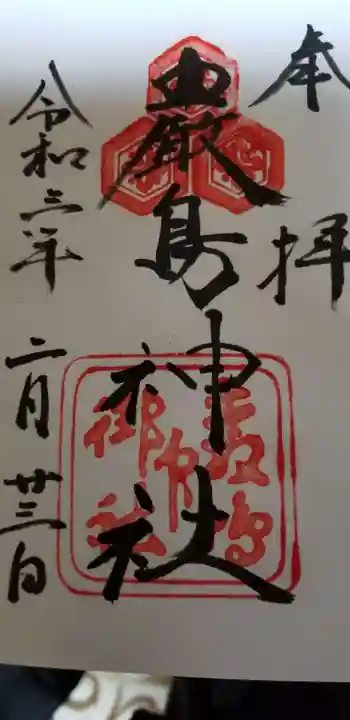 奉拝
厳島神社
令和三年 二月廿三日